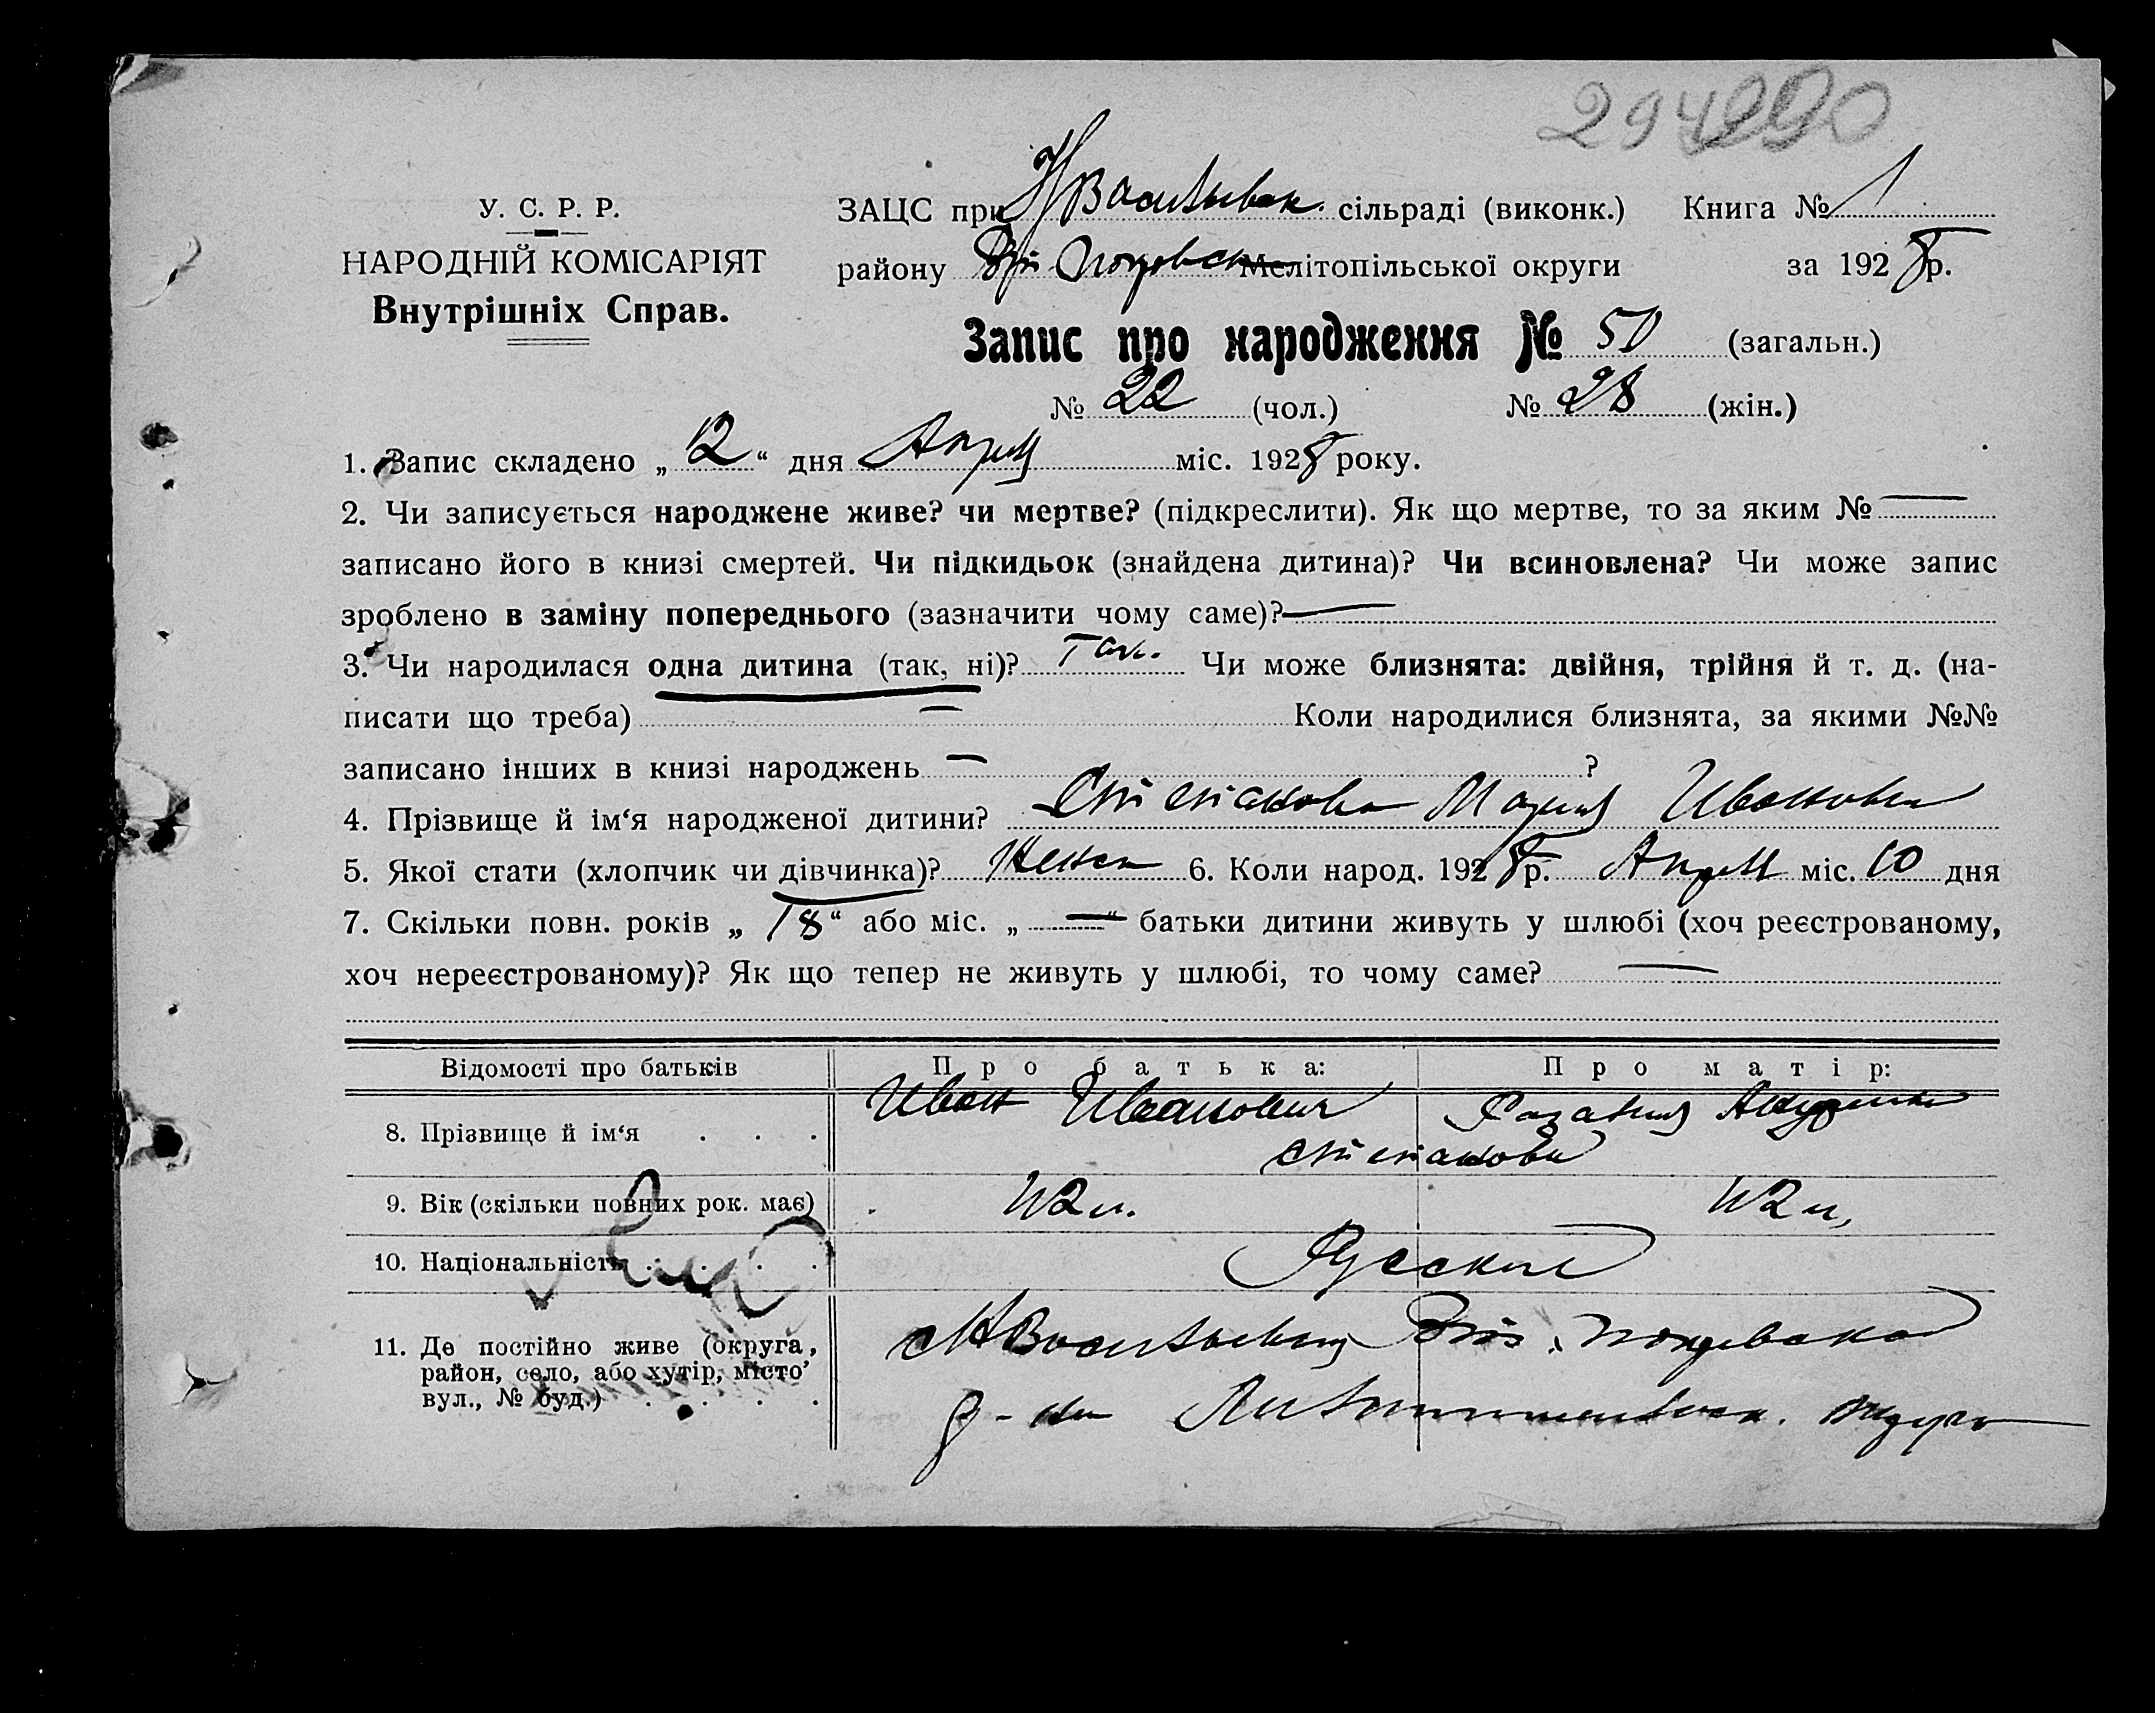 294
290
У. С. Р. Р.
НАРОДНІЙ КОМІСАРІЯТ
Внутрішніх Справ.
ЗАЦС при Н Васильевск. сільраді (виконк.) Книга № 1
району Мелітопільської округи за 1928 р.
Запис про народження № 50 (загальн.)
№ 22 (чол.) № 28 (жін.)
1. Запис складено „ 12 “ дня Апреля міс. 1928 року.
2. Чи записується народжене живе? чи мертве? (підкреслити). Як що мертве, то за яким № —
записано його в книзі смертей. Чи підкидьок (знайдена дитина)? Чи всиновлена? Чи може запис
зроблено в заміну попереднього (зазначити чому саме)? —
3. Чи народилася одна дитина (так, ні)? Так. Чи може близнята: двійня, трійня й т. д. (на-
писати що треба) — Коли народилися близнята, за якими №№
записано інших в книзі народжень — ?
4. Прізвище й ім‘я народженої дитини? Степанова Мария Ивановна
5. Якої стати (хлопчик чи дівчинка)? Женск 6. Коли народ. 1928 р. Апреля міс. 10 дня
7. Скільки повн. років „ 18 “ або міс. „ — “ батьки дитини живуть у шлюбі (хоч реєстрованому,
хоч нереєстрованому)? Як що тепер не живуть у шлюбі, то чому саме? —
Відомості про батьків Про батька: Про матір:
8. Прізвище й ім‘я . . . Иван Иванович
Степановы
9. Вік (скільки повних рок. має) 42 л. 42 л.
10. Національність . . . . Русские
11. Де постійно живе (округа, район, село, або хутір, місто’ вул., № буд.) . . . . Н Васильевка
р-на округа